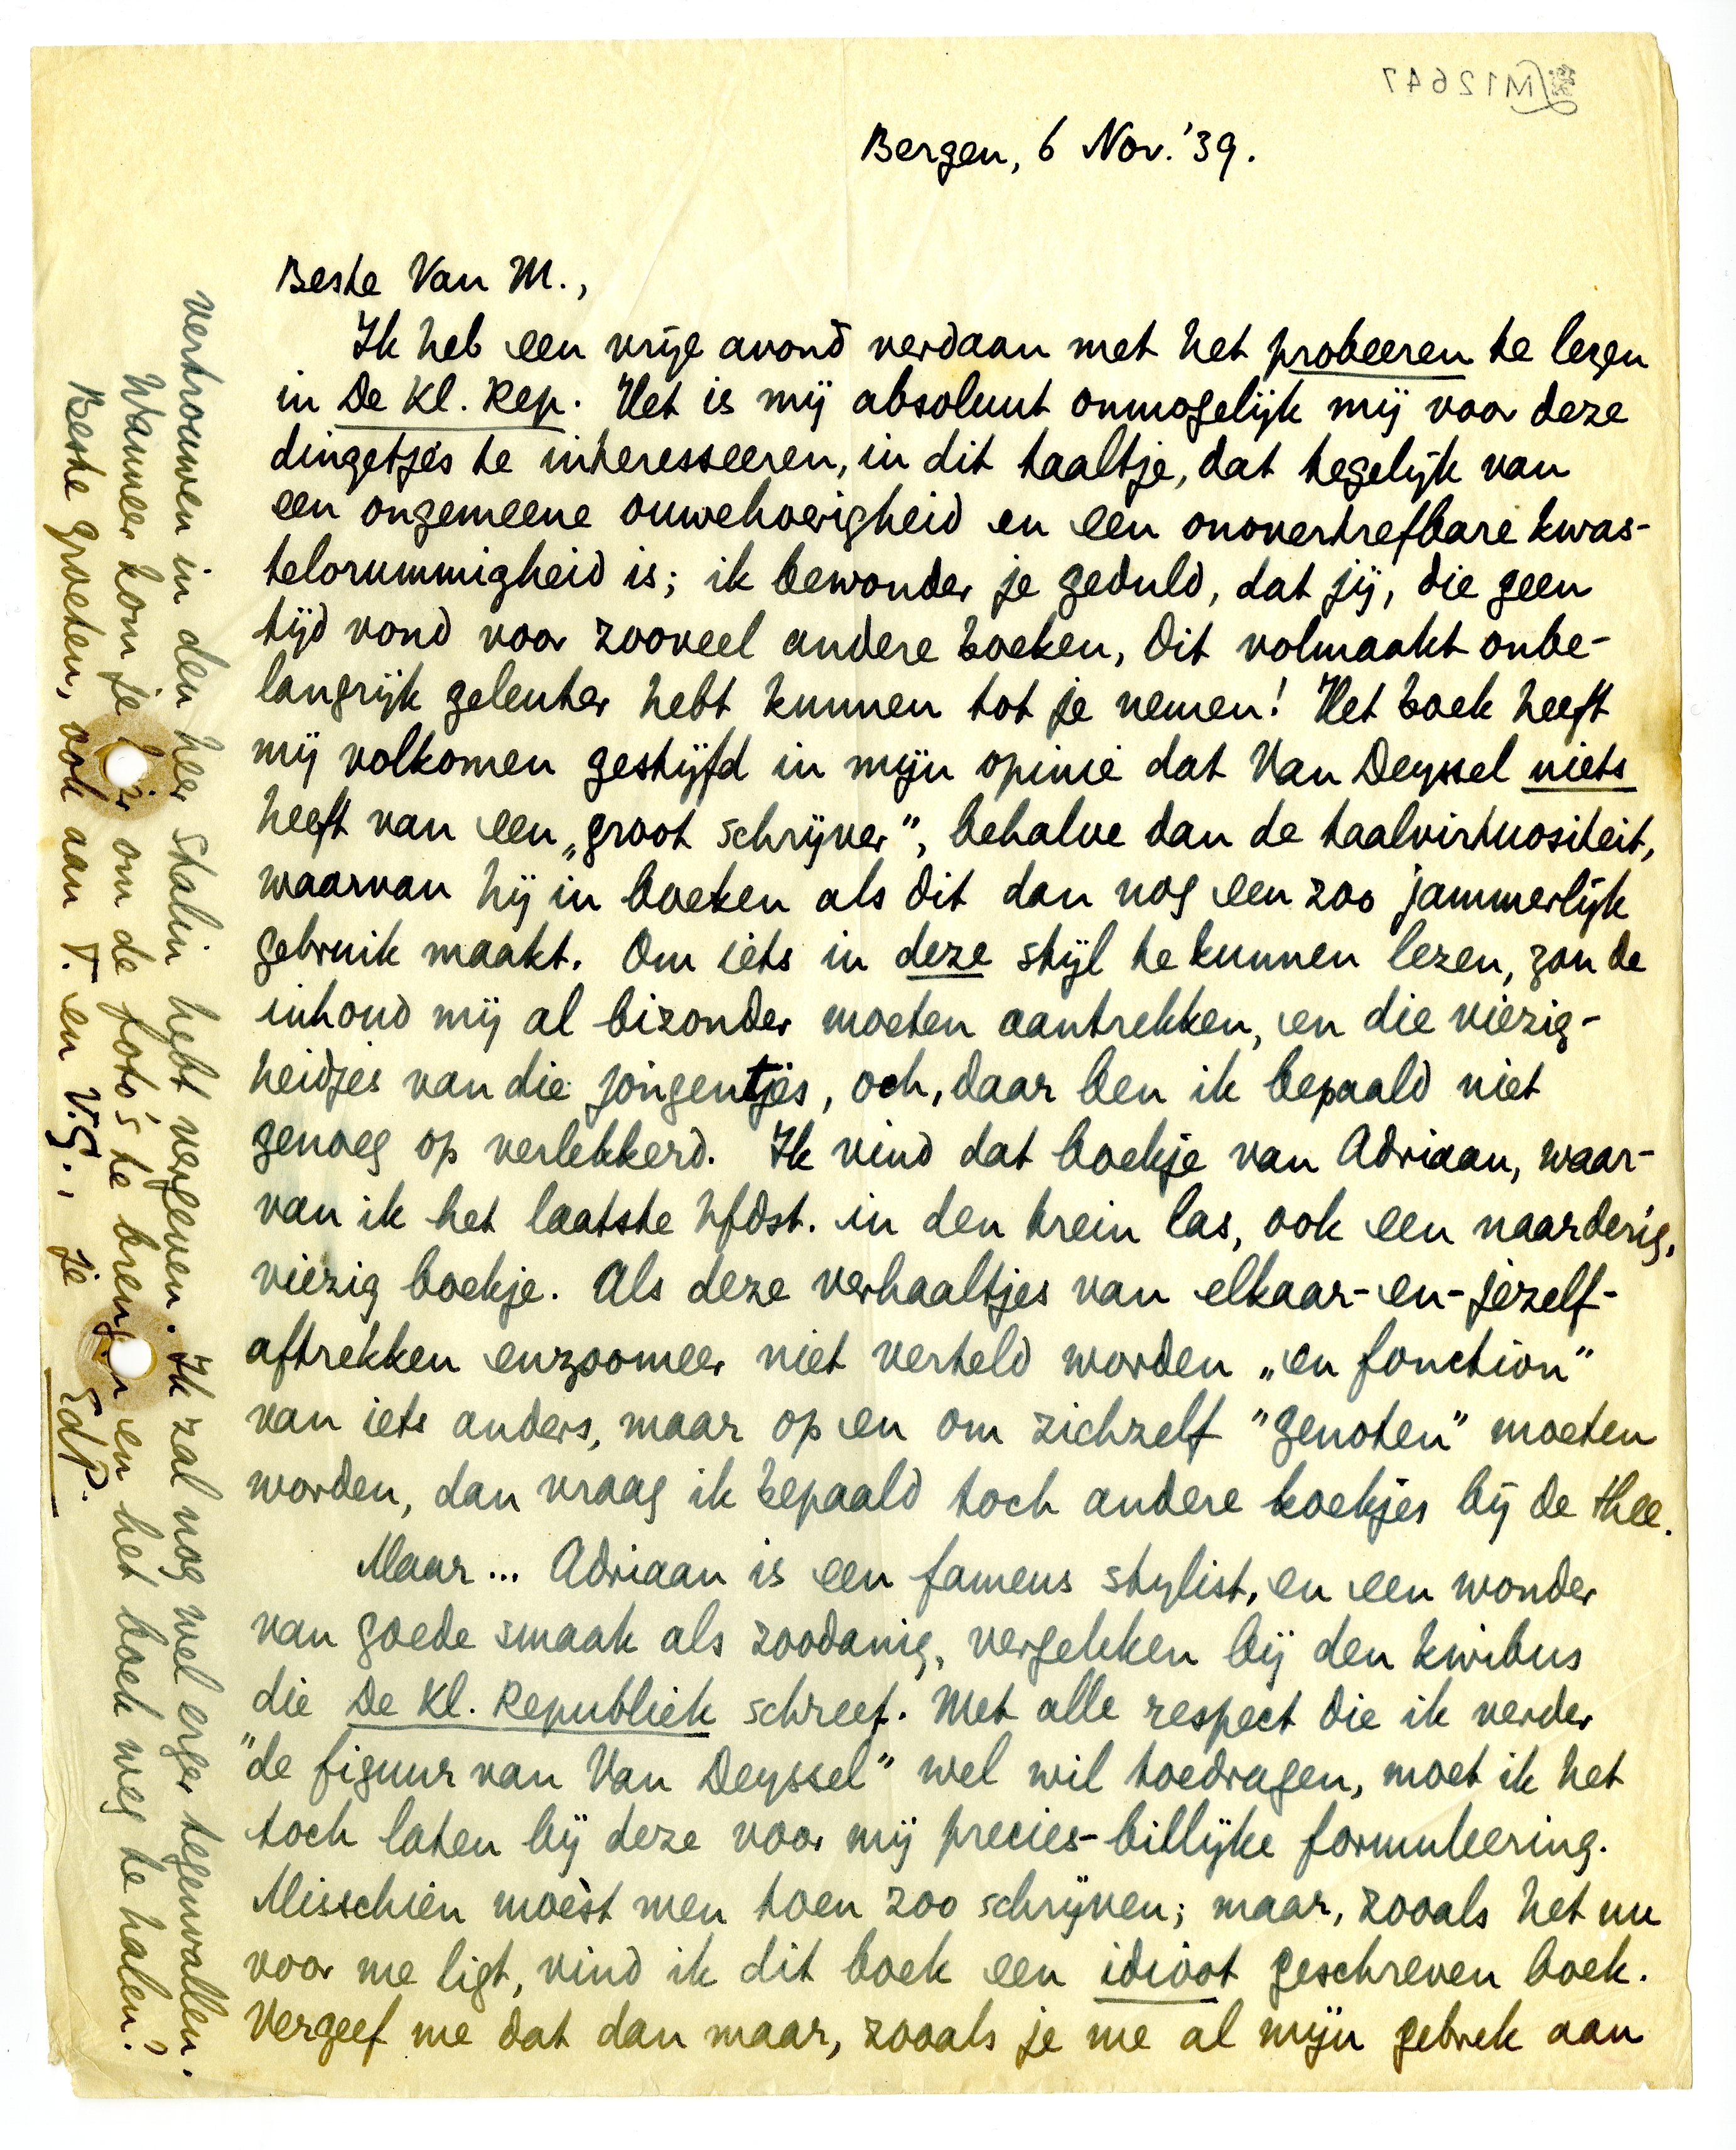 M12647
Bergen, 6 Nov. '39.
Beste Van M.,
Ik heb een vrije avond verdaan met het probeeren te lezen
in De Kl. Rep. Het is mij absoluut onmogelijk mij voor deze
dingetjes te interesseeren, in dit taaltje, dat tegelijk van
een ongemeene ouwehoerigheid en een onovertrefbare kwas-
telorummigheid is; ik bewonder je geduld, dat jij, die geen
tijd vond voor zooveel andere boeken, dit volmaakt onbe-
langrijk geleuter hebt kunnen tot je nemen! Het boek heeft
mij volkomen gestijfd in mijn opinie dat Van Deyssel niets
heeft van een „groot schrijver”, behalve dan de taalvirtuositeit,
waarvan hij in boeken als dit dan nog een zoo jammerlijk
gebruik maakt. Om iets in deze stijl te kunnen lezen, zou de
inhoud mij al bizonder moeten aantrekken, en die viezig-
heidjes van die jongentjes, och, daar ben ik bepaald niet
genoeg op verlekkerd. Ik vind dat boekje van Adriaan, waar-
van ik het laatste hfdst. in den trein las, ook een naarderig,
viezig boekje. Als deze verhaaltjes van elkaar-en-jezelf-
aftrekken enzoomeer niet verteld worden „en fonction”
van iets anders, maar op en om zichzelf "genoten" moeten
worden, dan vraag ik bepaald toch andere koekjes bij de thee.
Maar... Adriaan is een fameus stylist, en een wonder
van goede smaak als zoodanig, vergeleken bij den kwibus
die De Kl. Republiek schreef. Met alle respect die ik verder
"de figuur van Van Deyssel" wel wil toedragen, moet ik het
toch laten bij deze voor mij precies-billijke formuleering.
Misschien moèst men toen zoo schrijven; maar, zooals het nu
voor me ligt, vind ik dit boek een idioot geschreven boek.
Vergeef me dat dan maar, zooals je me al mijn gebrek aan
vertrouwen in den heer Stalin hebt vergeven. Ik zal nog wel erger tegenvallen.
Wanneer kom je hier om de foto's te brengen en het boek weg te halen?
Beste groeten, ook aan T. en V.G., je EdP.